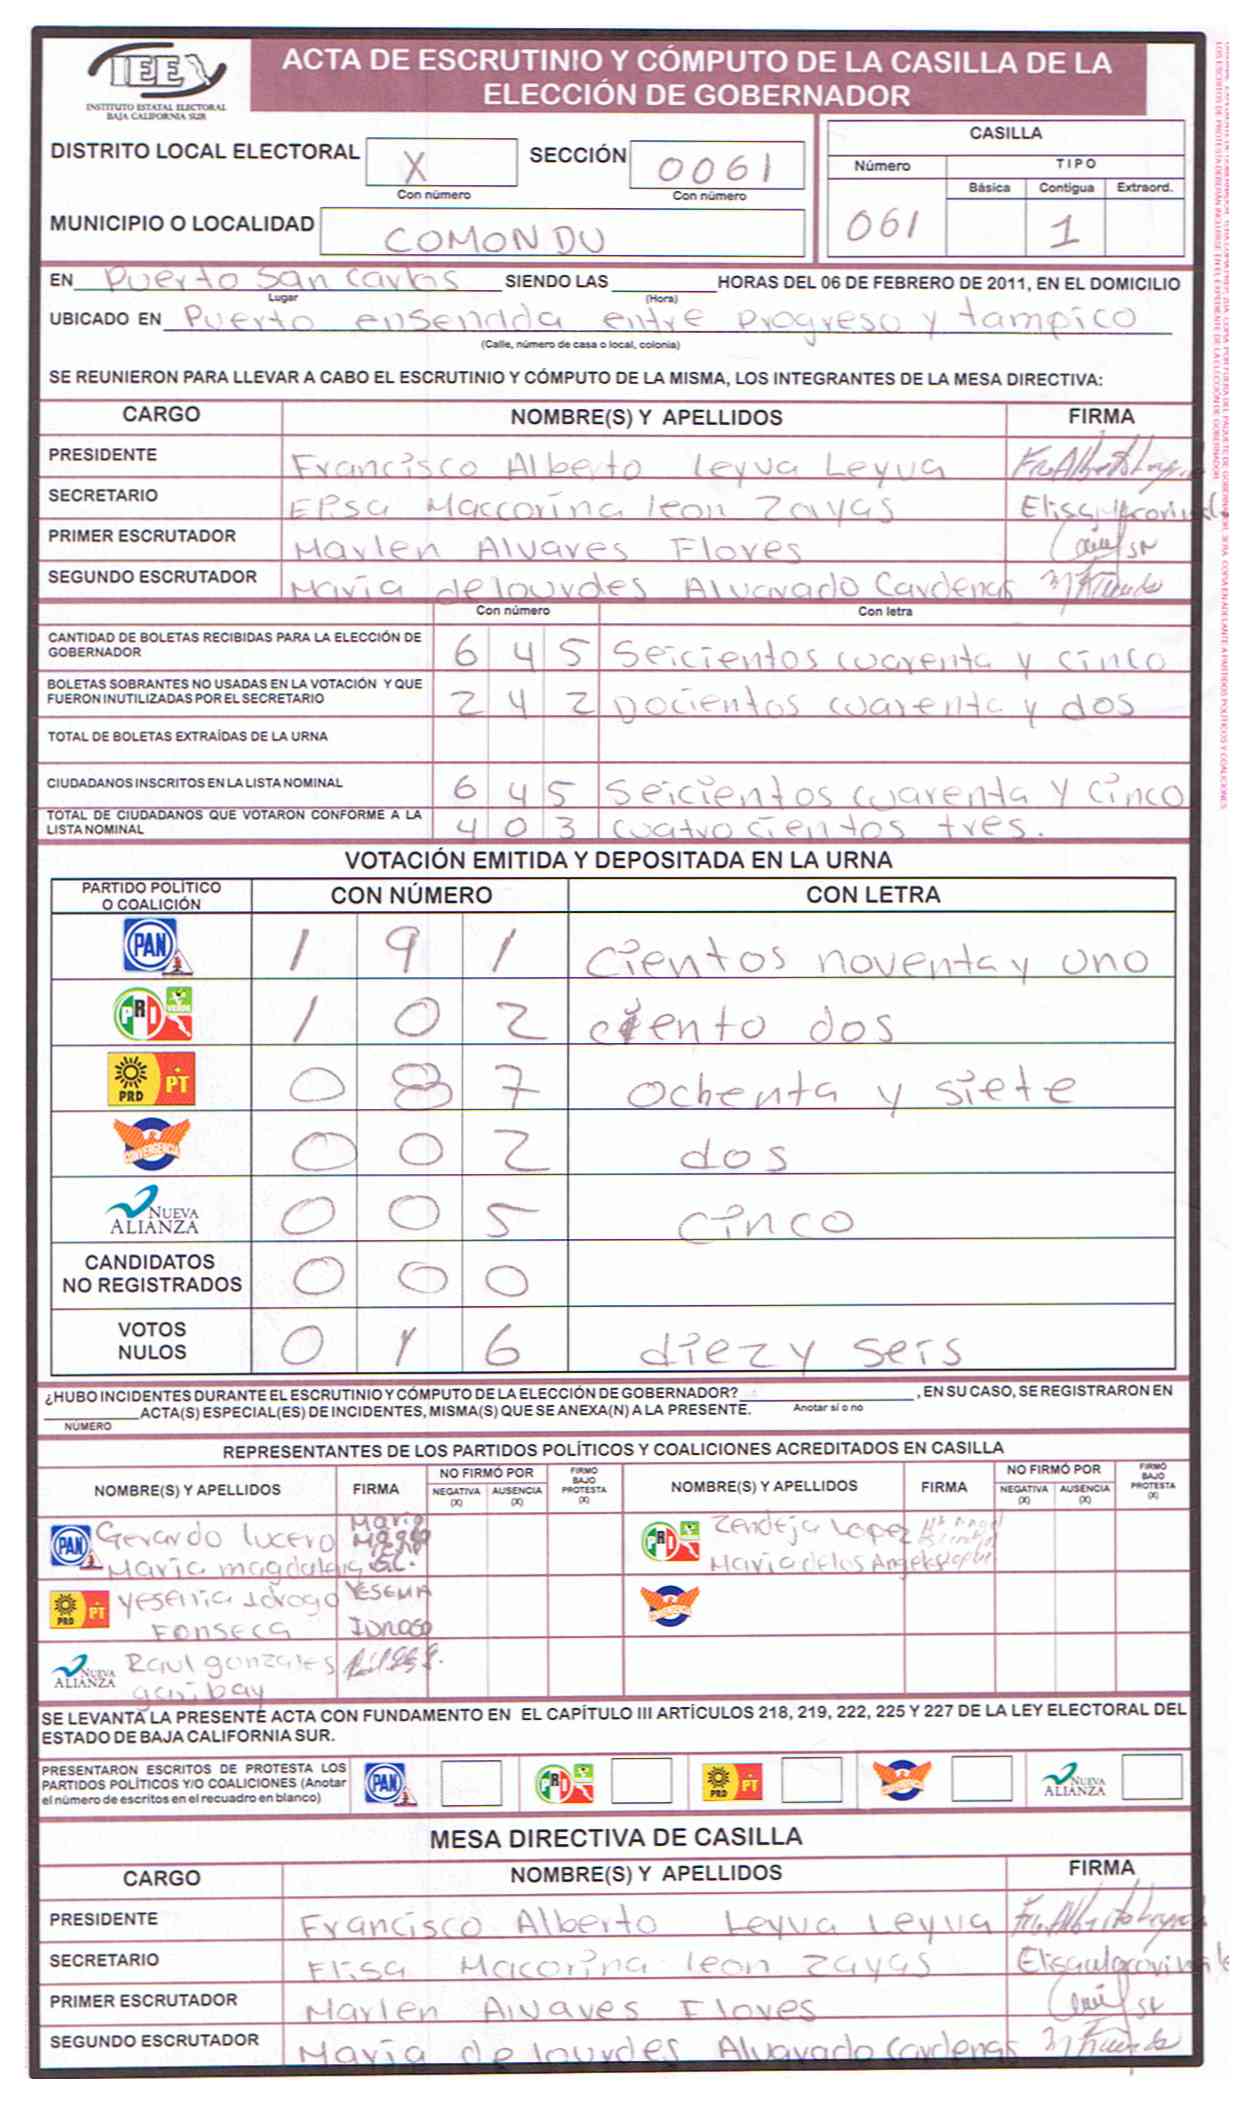 IEE
INSTITUTO ESTATAL ELECTORAL
BAJA CALIFORNIA SUR
ACTA DE ESCRUTINIO Y CÓMPUTO DE LA CASILLA DE LA
ELECCIÓN DE GOBERNADOR
DISTRITO LOCAL ELECTORAL X SECCIÓN 0061
Con número Con número
MUNICIPIO O LOCALIDAD COMONDU
CASILLA
Número TIPO
Básica Contigua Extraord.
061 1
EN Puerto San Carlos SIENDO LAS HORAS DEL 06 DE FEBRERO DE 2011, EN EL DOMICILIO
Lugar (Hora)
UBICADO EN Puerto ensenada entre Progreso y tampico
(Calle, número de casa o local, colonia)
SE REUNIERON PARA LLEVAR A CABO EL ESCRUTINIO Y CÓMPUTO DE LA MISMA, LOS INTEGRANTES DE LA MESA DIRECTIVA:
CARGO NOMBRE(S) Y APELLIDOS FIRMA
PRESIDENTE Francisco Alberto Leyva Leyva
SECRETARIO Elisa Maccorina leon Zayas
PRIMER ESCRUTADOR Marlen Alvares Flores
SEGUNDO ESCRUTADOR Maria de lourdes Alvarado Cardenas
Con número Con letra
CANTIDAD DE BOLETAS RECIBIDAS PARA LA ELECCIÓN DE
GOBERNADOR 6 4 5 Seicientos cuarenta y cinco
BOLETAS SOBRANTES NO USADAS EN LA VOTACIÓN Y QUE
FUERON INUTILIZADAS POR EL SECRETARIO 2 4 2 Docientos cuarenta y dos
TOTAL DE BOLETAS EXTRAÍDAS DE LA URNA
CIUDADANOS INSCRITOS EN LA LISTA NOMINAL 6 4 5 Seicientos cuarenta y cinco
TOTAL DE CIUDADANOS QUE VOTARON CONFORME A LA
LISTA NOMINAL 4 0 3 cuatrocientos tres.
VOTACIÓN EMITIDA Y DEPOSITADA EN LA URNA
PARTIDO POLÍTICO
O COALICIÓN CON NÚMERO CON LETRA
PAN 1 9 1 cientos noventa y uno
PRI VERDE 1 0 2 ciento dos
PRD PT 0 8 7 ochenta y siete
CONVERGENCIA 0 0 2 dos
NUEVA ALIANZA 0 0 5 cinco
CANDIDATOS
NO REGISTRADOS 0 0 0
VOTOS
NULOS 0 1 6 diez y seis
¿HUBO INCIDENTES DURANTE EL ESCRUTINIO Y CÓMPUTO DE LA ELECCIÓN DE GOBERNADOR? , EN SU CASO, SE REGISTRARON EN
ACTA(S) ESPECIAL(ES) DE INCIDENTES, MISMA(S) QUE SE ANEXA(N) A LA PRESENTE. Anotar sí o no
NÚMERO
REPRESENTANTES DE LOS PARTIDOS POLÍTICOS Y COALICIONES ACREDITADOS EN CASILLA
NOMBRE(S) Y APELLIDOS FIRMA NO FIRMÓ POR NEGATIVA (X) AUSENCIA (X) FIRMÓ BAJO PROTESTA (X) NOMBRE(S) Y APELLIDOS FIRMA NO FIRMÓ POR NEGATIVA (X) AUSENCIA (X) FIRMÓ BAJO PROTESTA (X)
PAN Gerardo lucero Maria PRI VERDE Zendeja Lopez
Maria magdalena G.C. Maria de los Angeles
PRD PT Yesenia Idrogo YESENIA CONVERGENCIA
Fonseca IDROGO
NUEVA ALIANZA Raul gonzales
garibay
SE LEVANTA LA PRESENTE ACTA CON FUNDAMENTO EN EL CAPÍTULO III ARTÍCULOS 218, 219, 222, 225 Y 227 DE LA LEY ELECTORAL DEL
ESTADO DE BAJA CALIFORNIA SUR.
PRESENTARON ESCRITOS DE PROTESTA LOS
PARTIDOS POLÍTICOS Y/O COALICIONES (Anotar
el número de escritos en el recuadro en blanco)
PAN PRI VERDE PRD PT CONVERGENCIA NUEVA ALIANZA
MESA DIRECTIVA DE CASILLA
CARGO NOMBRE(S) Y APELLIDOS FIRMA
PRESIDENTE Francisco Alberto Leyva Leyva
SECRETARIO Elisa Macorina leon zayas
PRIMER ESCRUTADOR Marlen Alvares Flores
SEGUNDO ESCRUTADOR Maria de lourdes Alvarado Cardenas